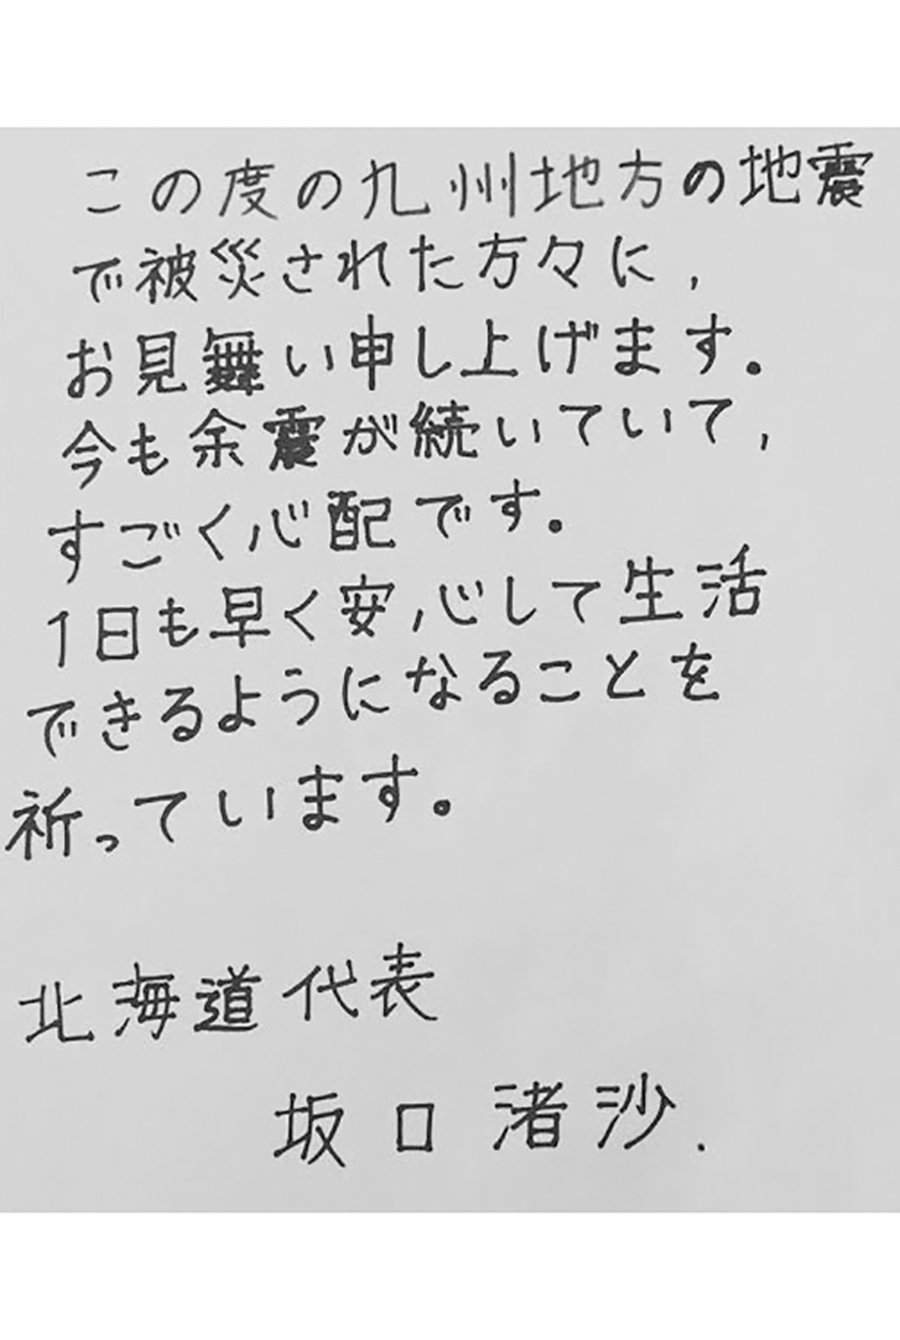 この度の九州地方の地震
で被災された方々に,
お見舞い申し上げます。
今も余震が続いていて,
すごく心配です。
1日も早く安心して生活
できるようになることを
祈っています。
北海道代表
坂口渚沙.